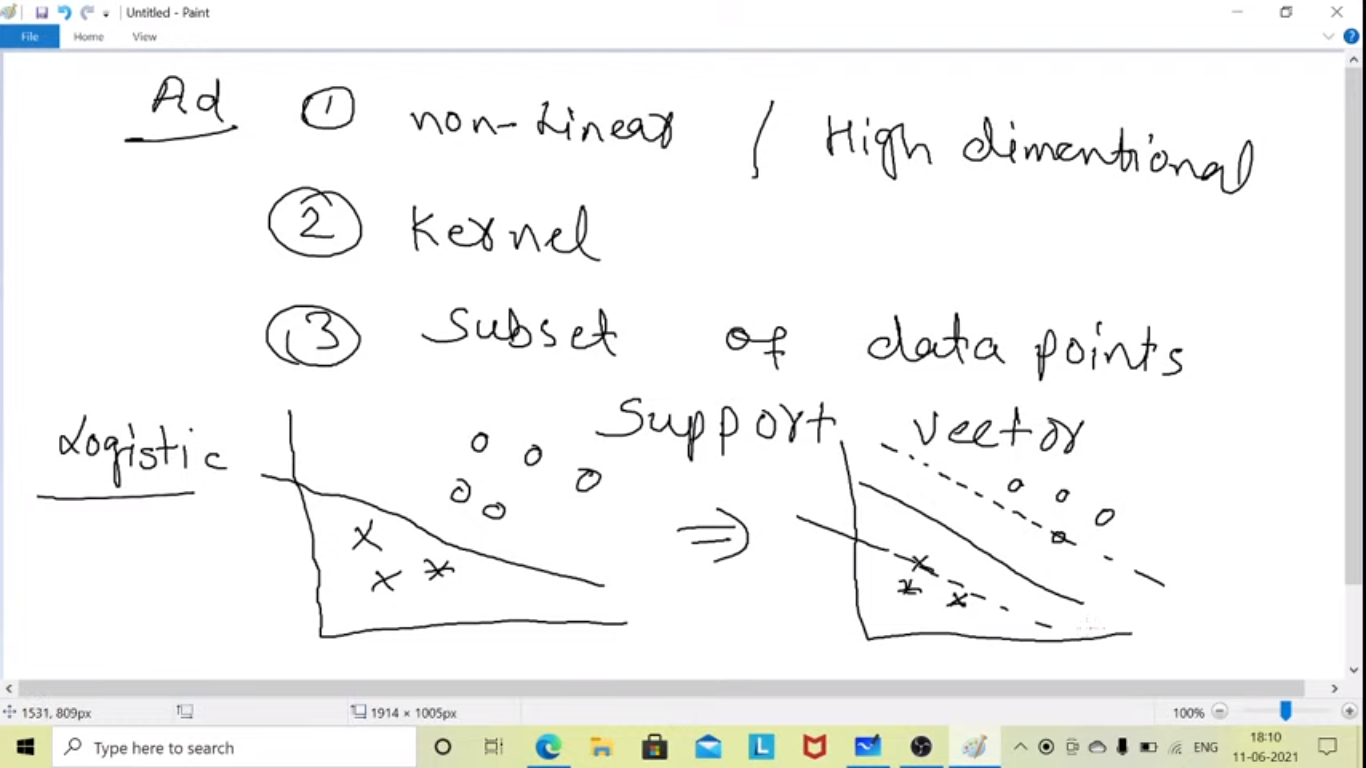 Untitled - Paint
File Home View
Ad ① non-Linear / High dimentional
② Kernel
③ Subset of data points
Logistic
Support vector
1531, 809px
1914 × 1005px
100%
Type here to search
ENG
18:10
11-06-2021